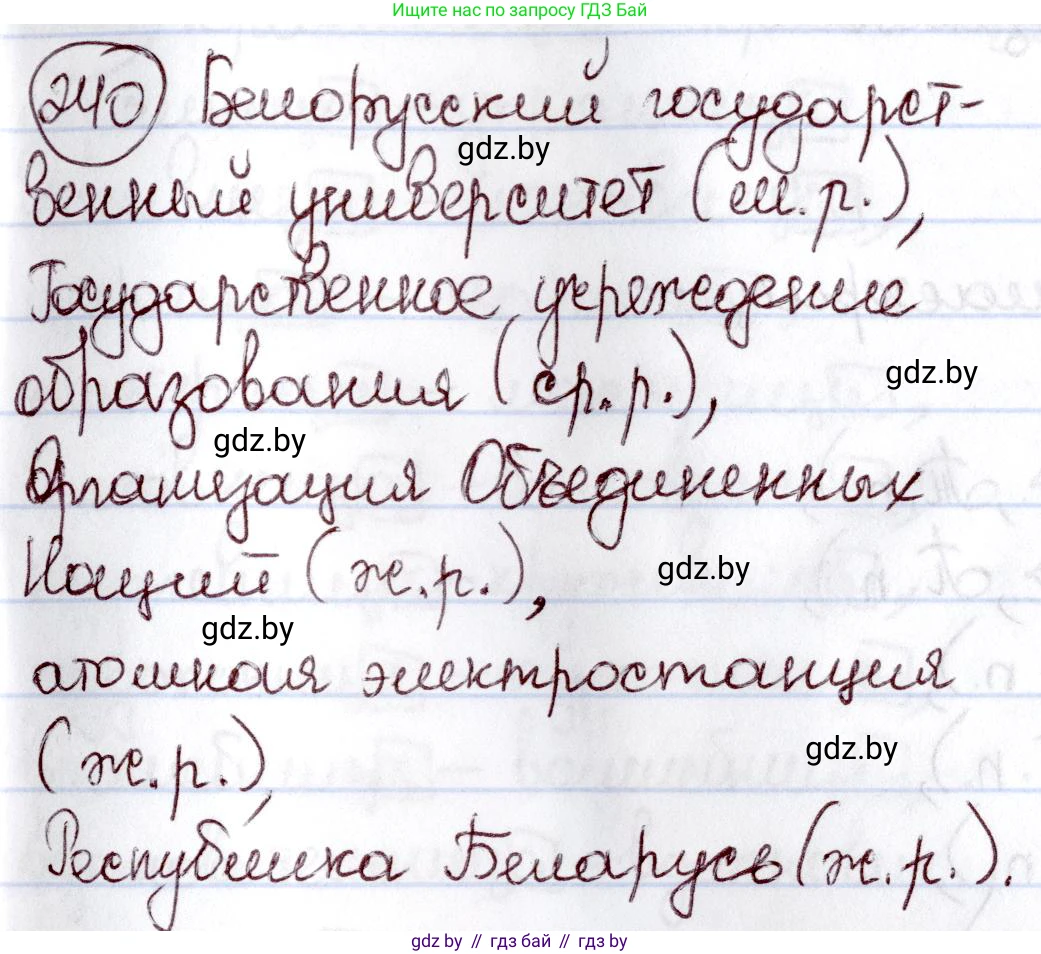 Ищите нас по запросу ГДЗ Бай
240 Белорусский государст-
gdz.by
венный университет (м.р.),
Государственное учреждение
образования (ср.р.),
gdz.by
gdz.by
Организация Объединенных
Наций (ж.р.),
gdz.by
gdz.by
атомная электростанция
(ж.р.),
gdz.by
Республика Беларусь (ж.р.).
gdz.by // гдз бай // гдз by